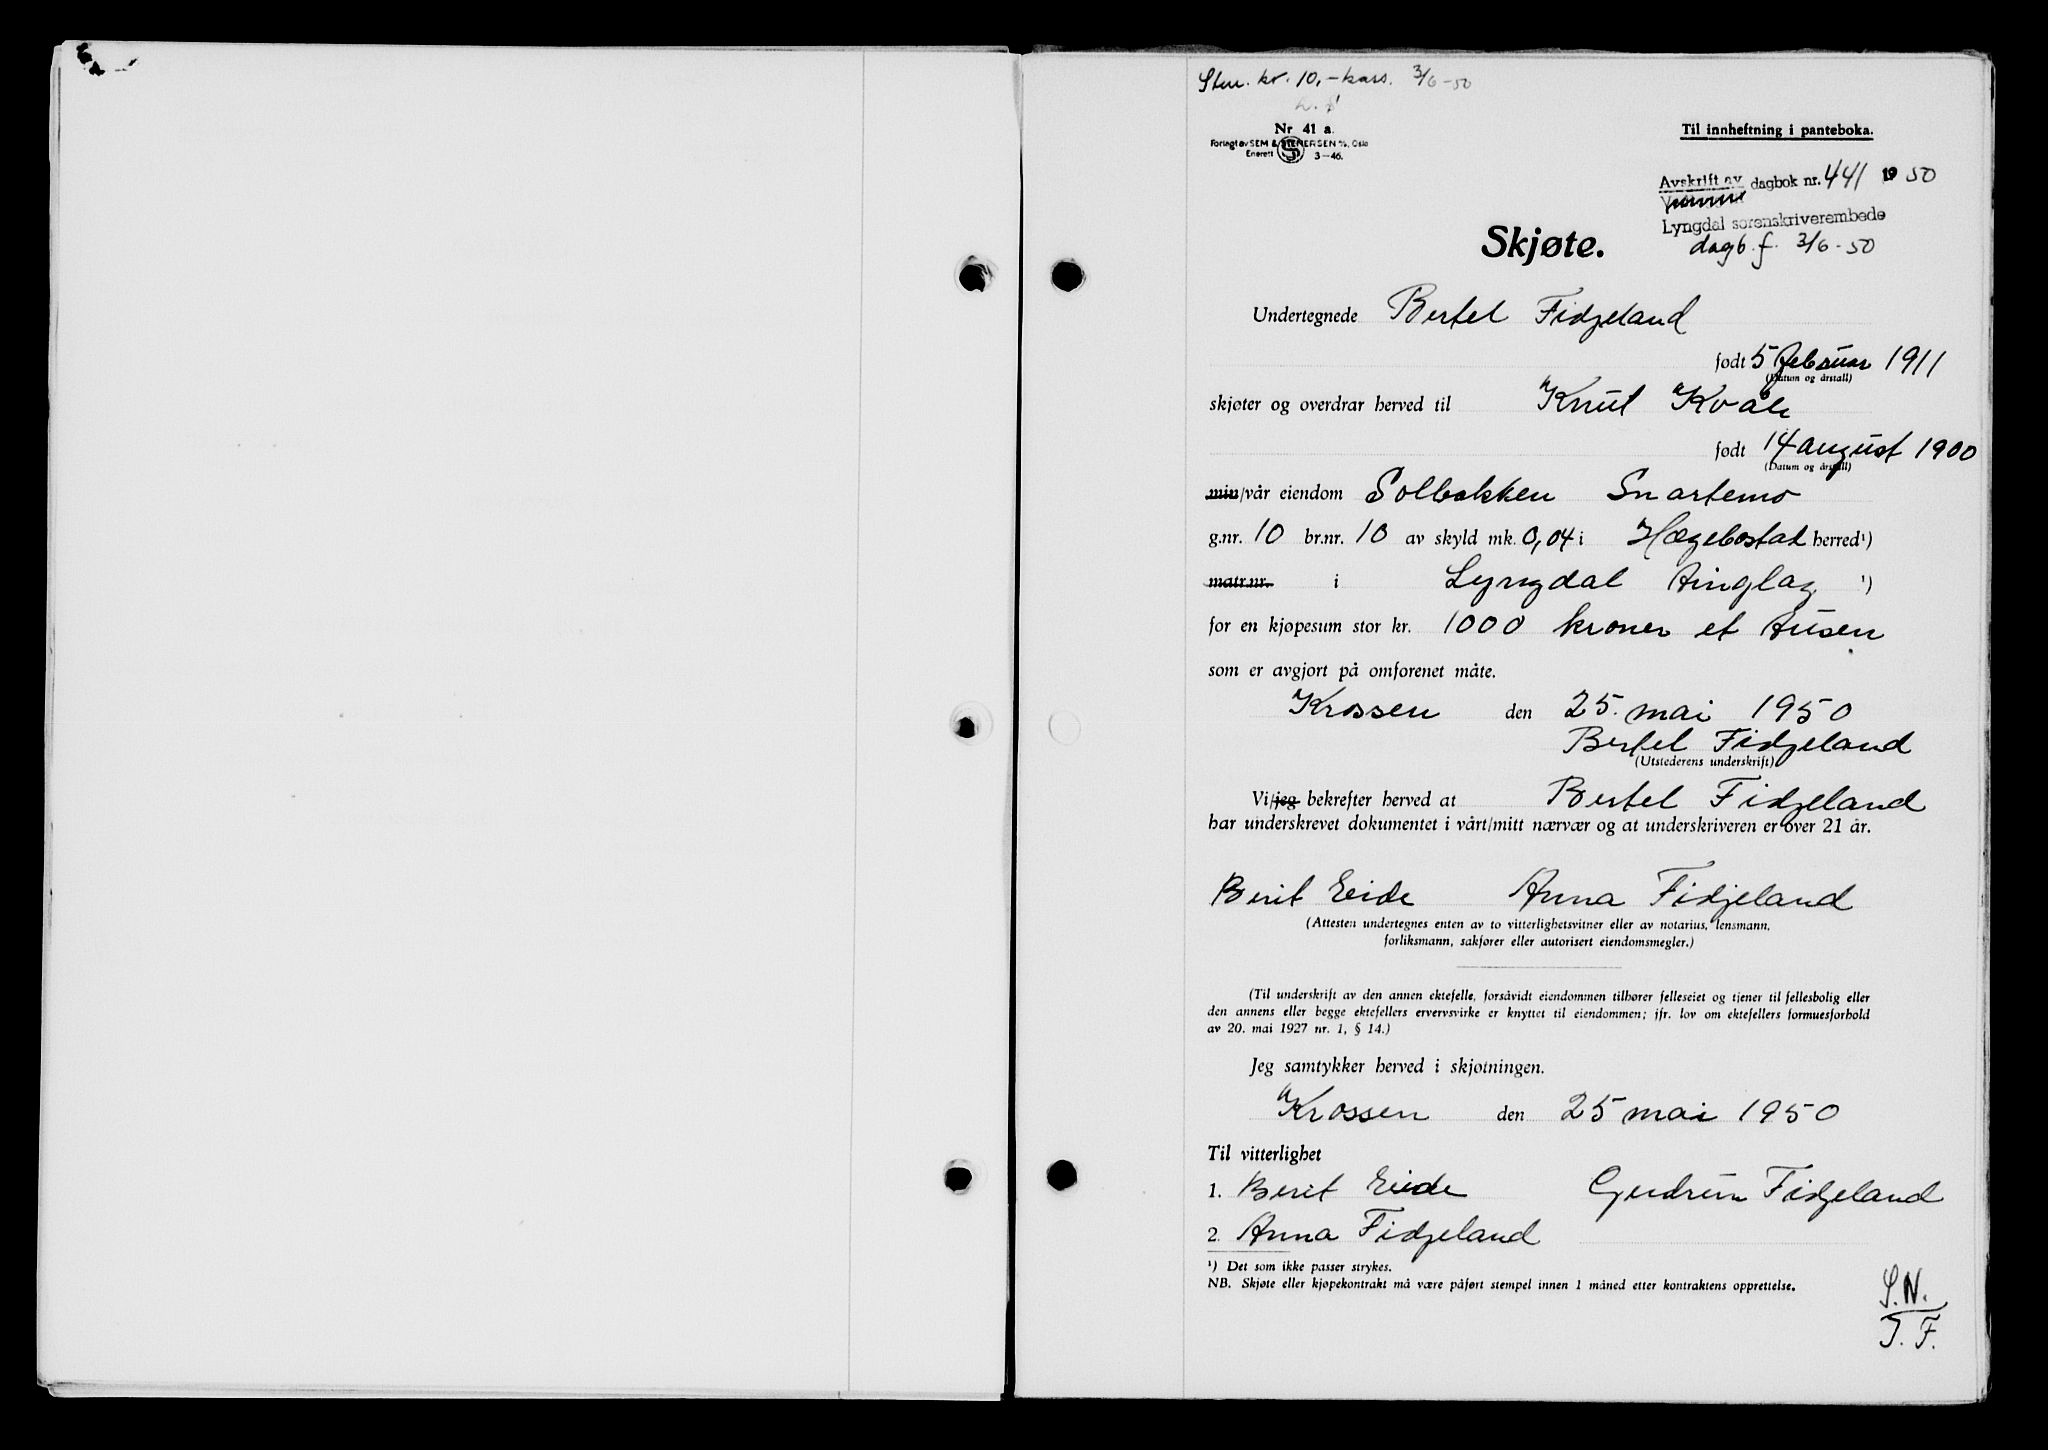 Stm. kr. 10,- kass. 3/6-50
Nr 41 a.
Forlagt av SEM & STENERSEN A/S, Oslo
Enerett 3-46.
Til innheftning i panteboka.
Avskrift av dagbok nr. 441 1950
Lyngdal sorenskriverembede
dagb. f. 3/6-50
Skjøte.
Undertegnede Bertel Fidjeland
født 5 februar 1911
(Datum og årstall)
skjøter og overdrar herved til Knut Kvåle
født 14 august 1900
(Datum og årstall)
min/vår eiendom Solbakken Snartemo
g.nr. 10 br.nr. 10 av skyld mk. 0,04 i Hægebostad herred¹)
matr.nr. i Lyngdal tinglag ¹)
for en kjøpesum stor kr. 1000 kroner et tusen
som er avgjort på omforenet måte.
Krossen den 25. mai 1950
Bertel Fidjeland
(Utstederens underskrift)
Vi/jeg bekrefter herved at Bertel Fidjeland
har underskrevet dokumentet i vårt/mitt nærvær og at underskriveren er over 21 år.
Berit Eide Anna Fidjeland
(Attesten undertegnes enten av to vitterlighetsvitner eller av notarius, lensmann,
forliksmann, sakfører eller autorisert eiendomsmegler.)
(Til underskrift av den annen ektefelle, forsåvidt eiendommen tilhører felleseiet og tjener til fellesbolig eller
den annens eller begge ektefellers ervervsvirke er knyttet til eiendommen; jfr. lov om ektefellers formuesforhold
av 20. mai 1927 nr. 1, § 14.)
Jeg samtykker herved i skjøtningen.
Krossen den 25 mai 1950
Til vitterlighet
1. Berit Eide Gudrun Fidjeland
2. Anna Fidjeland
¹) Det som ikke passer strykes.
NB. Skjøte eller kjøpekontrakt må være påført stempel innen 1 måned etter kontraktens opprettelse.
S.N.
J.F.